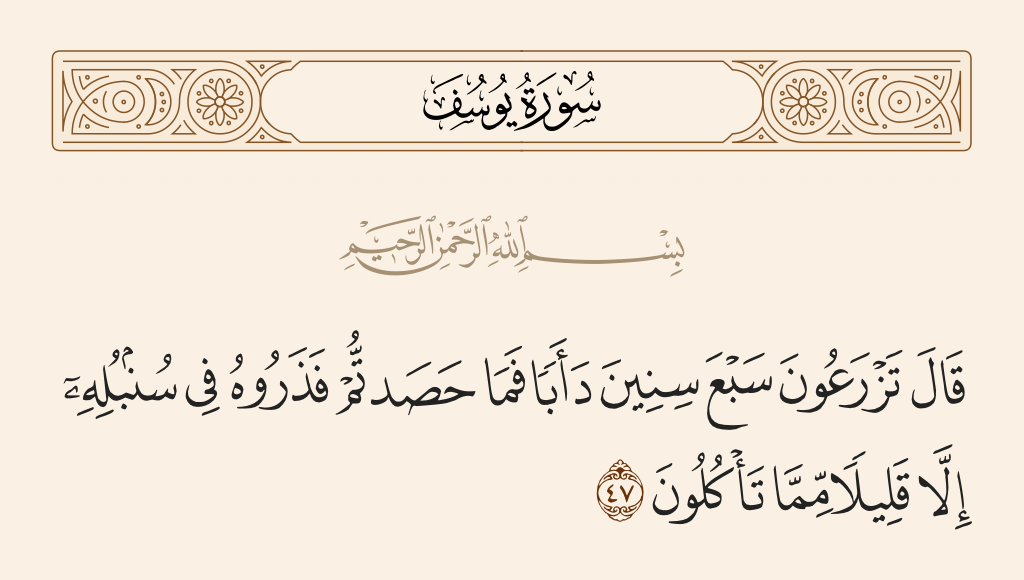 سُورَةُ يُوسُفَ
بِسْمِ ٱللَّهِ ٱلرَّحْمَٰنِ ٱلرَّحِيمِ
قَالَ تَزْرَعُونَ سَبْعَ سِنِينَ دَأَبًا فَمَا حَصَدتُّمْ فَذَرُوهُ فِى سُنۢبُلِهِۦٓ
إِلَّا قَلِيلًا مِّمَّا تَأْكُلُونَ ٤٧